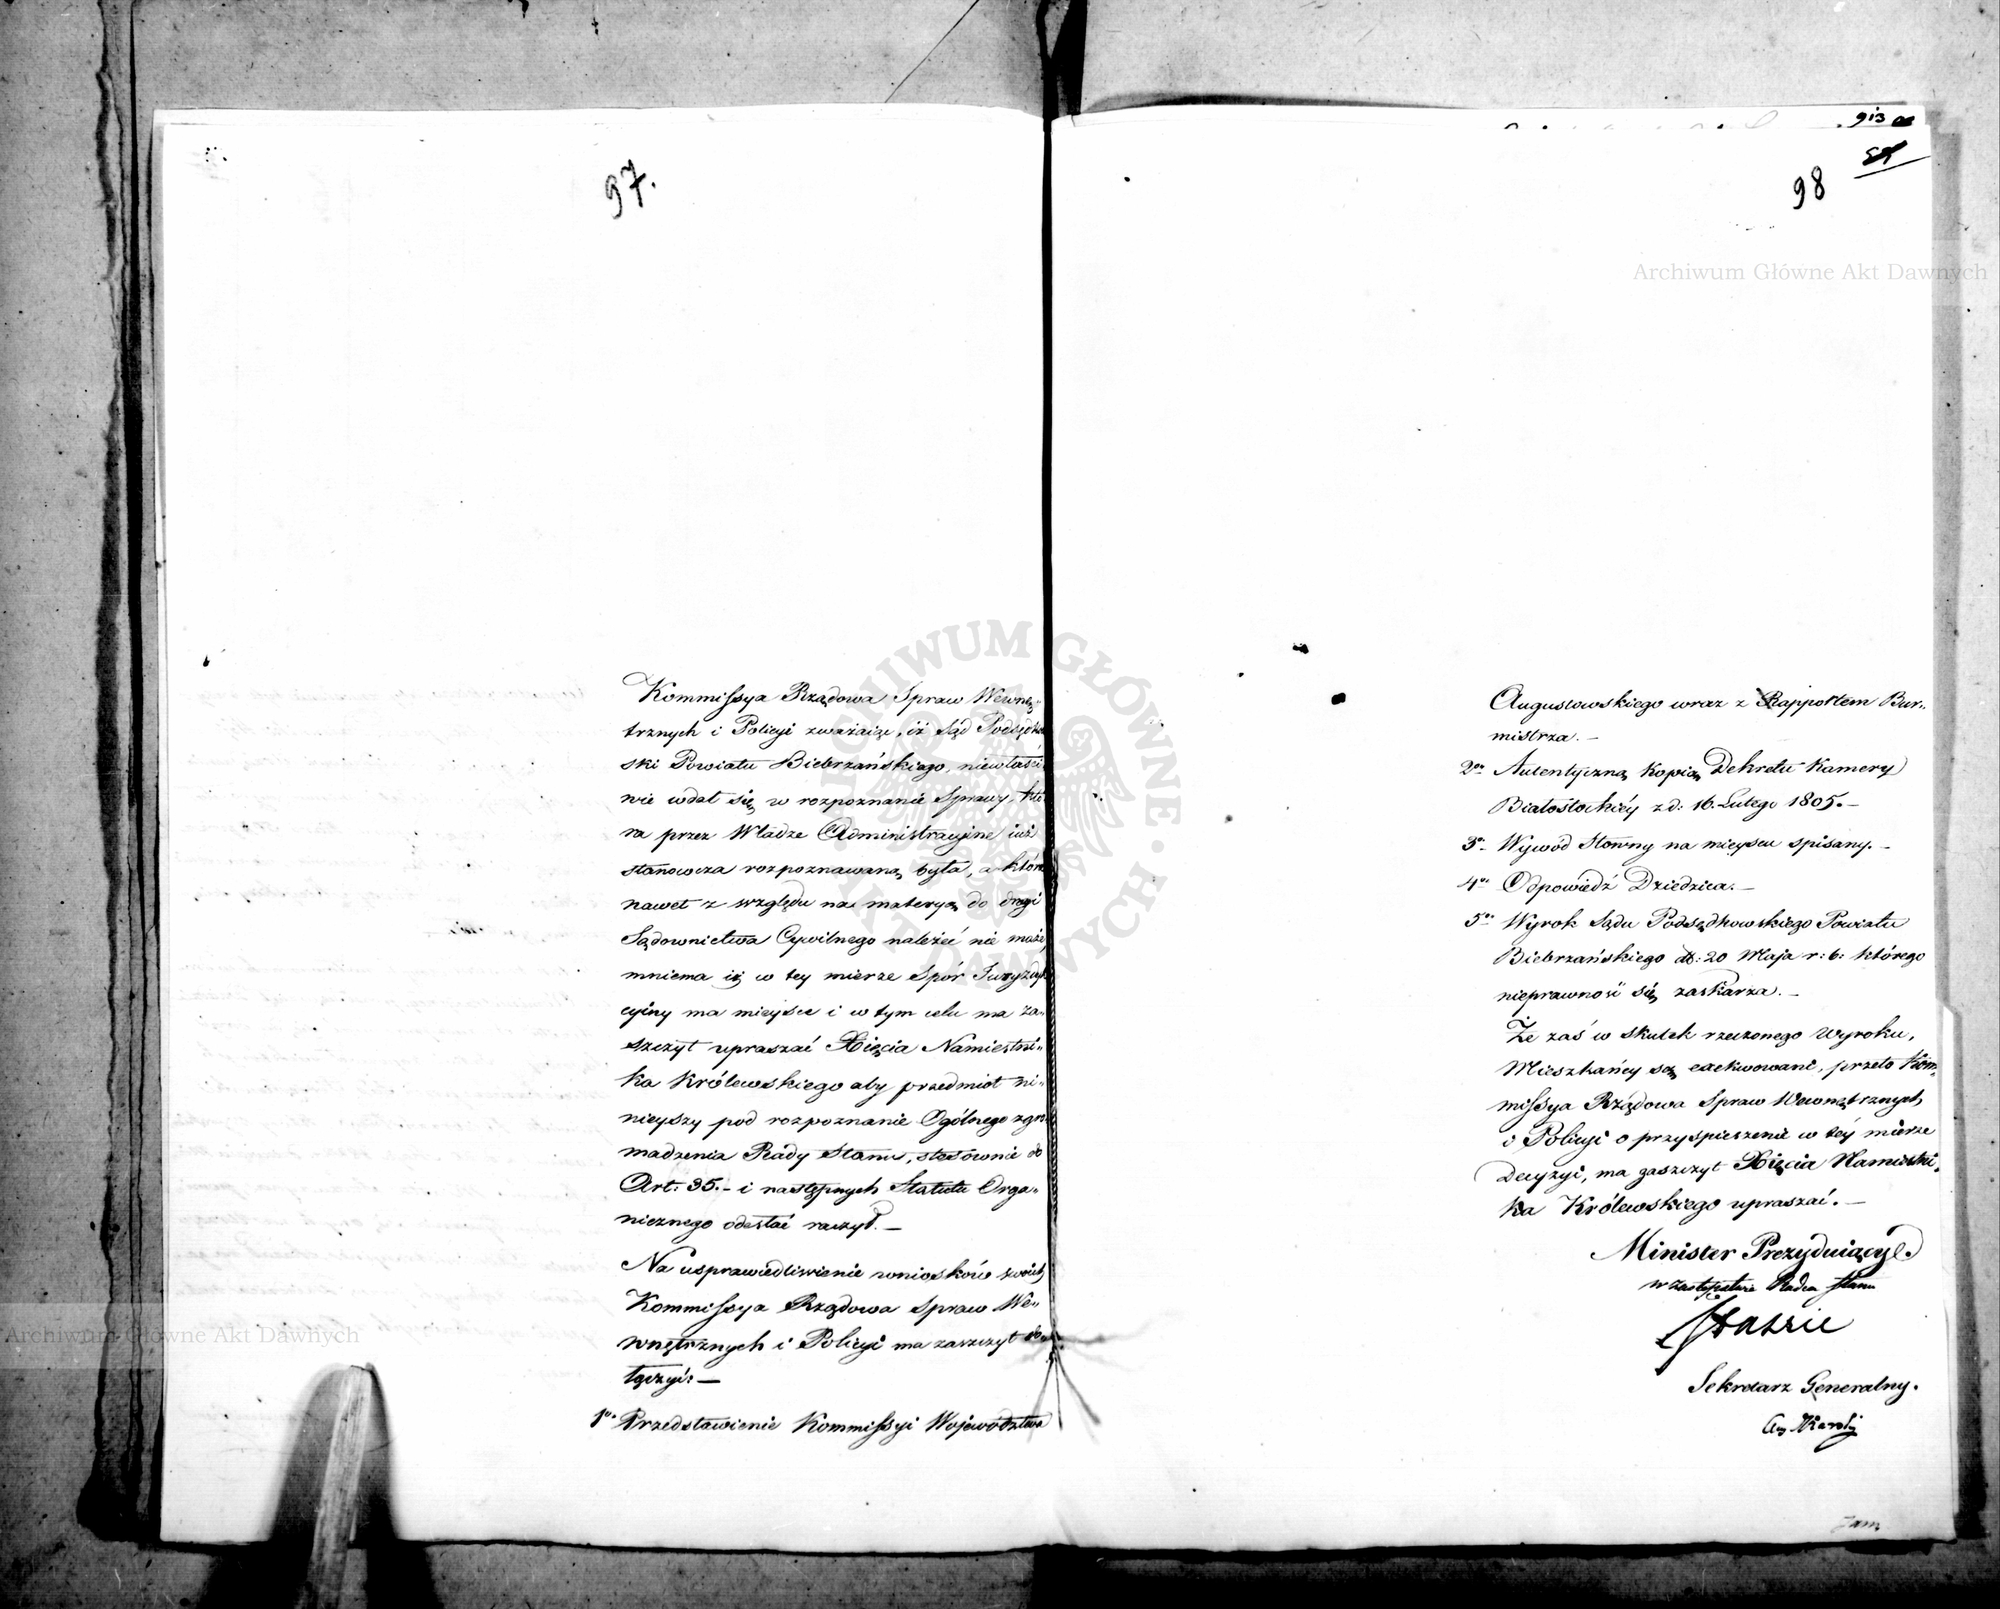 97.
Kommissya Rządowa Spraw Wewnę„
trznych i Policyi zważaiąc, iż Sąd Podsędko
ski Powiatu Biebrzańskiego, niewłaści
wie wdał się w rozpoznanie Sprawy, któ
ra przez Władze Administracyine iuż
stanowcza rozpoznawaną była, a która
nawet z względu na materyą do drogi
Sądownictwa Cywilnego należeć nie może,
mniema iż w tey mierze Spór Juryzdyk
cyiny ma mieysce i w tym celu ma za„
szczyt upraszać Xięcia Namiestni„
ka Królewskiego aby przedmiot ni„
nieyszy pod rozpoznanie Ogólnego zgro
madzenia Rady Stanu, stosównie do
Art: 35.- i następnych Statutu Orga„
nicznego odesłać raczył. —
Na usprawiedliwienie wniosków swoich
Kommissya Rządowa Spraw We„
wnętrznych i Policyi ma zaszczyt do„
łączyć: —
1o. Przedstawienie Kommissyi Województwa
913
98
Augustowskiego wraz z Rapportem Bur„
mistrza. —
2o. Autentyczną kopią Dekretu Kamery
Białostockiéy z d: 16. Lutego 1805. —
3o. Wywód Słowny na mieyscu spisany. —
4o. Odpowiedź Dziedzica. —
5o. Wyrok Sądu Podsędkowskiego Powiatu
Biebrzańskiego d: 20 Maja r: b: którego
nieprawność się zaskarza. —
Że zaś w skutek rzeczonego wyroku,
Mieszkańcy są exekwowani, przeto Kom„
missya Rządowa Spraw Wewnętrznych
i Policyi o przyspieszenie w téy mierze
Decyzyi, ma zaszczyt Xięcia Namiestni„
ka Królewskiego upraszać. —
Minister Prezyduiący
w zastępstwie Radca Stanu
Staszic
Sekretarz Generalny.
Archiwum Główne Akt Dawnych
Archiwum Główne Akt Dawnych
ARCHIWUM GŁÓWNE AKT DAWNYCH